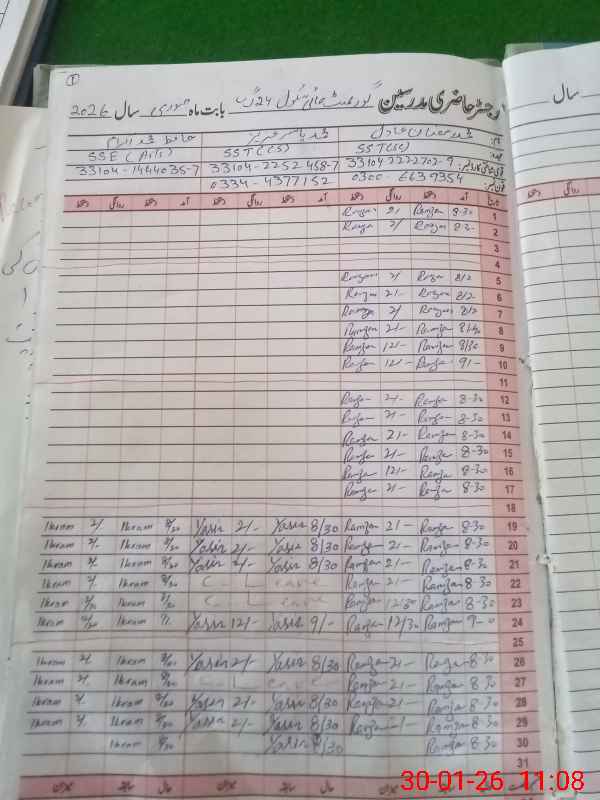 ①
رجسٹر حاضری مدرسین گورنمنٹ ہائی سکول 24 گ ب بابت ماہ جنوری سال 2026
سال
نام: محمد رمضان عادل محمد یاسر عزیز حافظ محمد اکرام
عہدہ SST(SC) SST(CS) SSE(Arts)
33104-2222702-9 33104-2252458-7 33104-1444035-7
فون نمبر: 0300-6639354 0334-4377152
تاریخ آمد دستخط روانگی دستخط آمد دستخط روانگی دستخط آمد دستخط روانگی دستخط
Ramzan 2/- Ramzan 8-30 1
Ramzan 2/ Ramzan 8-30 2
3
4
Ramzan 2/ Ramzan 8/2 5
Ramzan 2/- Ramzan 8/2 6
Ramzan 2/ Ramzan 8/2 7
Ramzan 2/- Ramzan 8
Ramzan 12/- Ramzan 8/30 9
Ramzan 12/- Ramzan 9/- 10
11
Ramzan 2/- Ramzan 8-30 12
Ramzan 2/- Ramzan 8-30 13
Ramzan 2/- Ramzan 8-30 14
Ramzan 2/- Ramzan 8-30 15
Ramzan 12/- Ramzan 8-30 16
Ramzan 2/- Ramzan 8-30 17
18
Ikram 2/. Ikram 8/30 Yasir 2/- Yasir 8/30 Ramzan 2/- Ramzan 8-30 19
Ikram 2/. Ikram 8/30 Yasir 2/- Yasir 8/30 Ramzan 2/- Ramzan 8-30 20
Ikram 2/. Ikram 8/30 Yasir 2/- Yasir 8/30 Ramzan 2/- Ramzan 8-30 21
Ikram 2/. Ikram 8/30 C - Leave Ramzan 2/- Ramzan 8-30 22
Ikram 12/30 Ikram 8/30 C - Leave Ramzan 12/30 Ramzan 8-30 23
Ikram 12/30 Ikram 9/. Yasir 12/- Yasir 9/- Ramzan 12/30 Ramzan 9-0 24
25
Ikram 2/. Ikram Yasir 2/- Yasir 8/30 Ramzan 2/- Ramzan 8-30 26
Ikram 2/. Ikram 8/30 C - Leave Ramzan 2/- Ramzan 8-30 27
Ikram 2/. Ikram 8/30 Yasir 2/- Yasir 8/30 Ramzan 2/- Ramzan 8-30 28
Ikram 2/. Ikram 8/30 Yasir 2/- Yasir 8/30 Ramzan 2/- Ramzan 8-30 29
Ikram 8/30 Yasir 8/30 Ramzan 8-30 30
31
حال سابقہ میزان حال سابقہ میزان
30-01-26 11:08